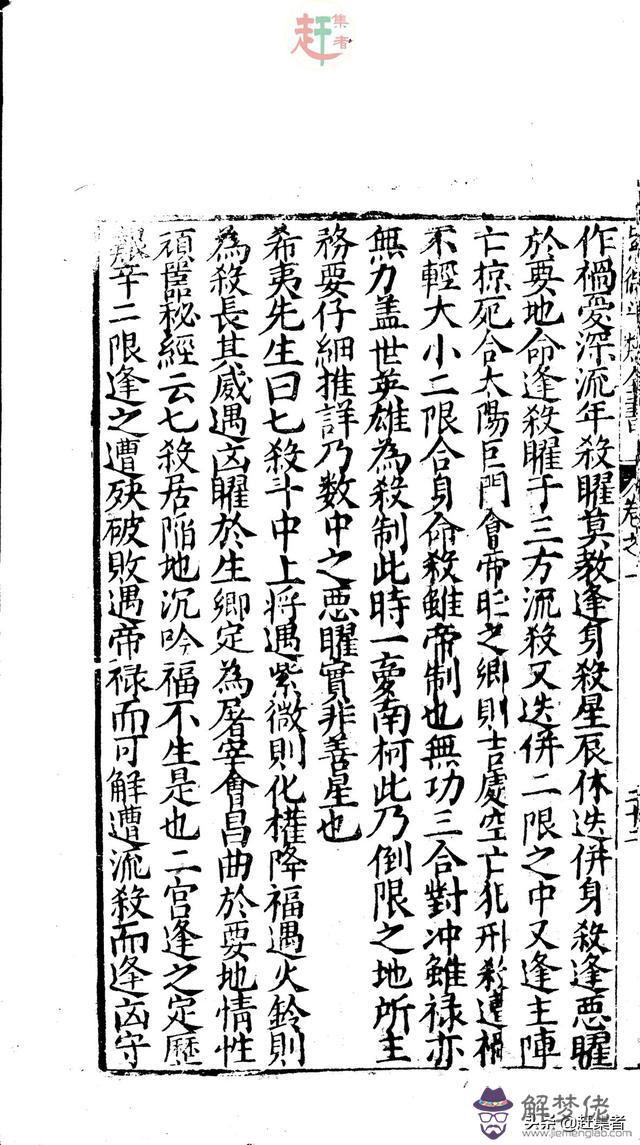 赶集者
作禍愛深流年殺曜莫教逢身殺星辰休迭併身殺逢悪曜
於要地命逢殺曜于三方流殺又迭併二限之中又逢主陣
亡掠死合太陽巨門會帝旺之鄉則吉處空亡犯刑殺遭禍
不輕大小二限合身命殺雖帝制也無功三合對冲雖禄亦
無力盖世英雄為殺制此時一夣南柯此乃倒限之地所主
務要仔細推詳乃数中之悪曜實非善星也
希夷先生曰七殺斗中上將遇紫微則化權降福遇火鈴則
為殺長其威遇凶曜於生鄉定為屠宰會昌曲於要地情性
頑嚚秘經云七殺居陥地沉吟福不生是也二宮逢之定歷
艱辛二限逢之遭殃破敗遇帝禄而可解遭流殺而逢凶守
頭条 @赶集者
解梦佬
www.jiemenglab.com